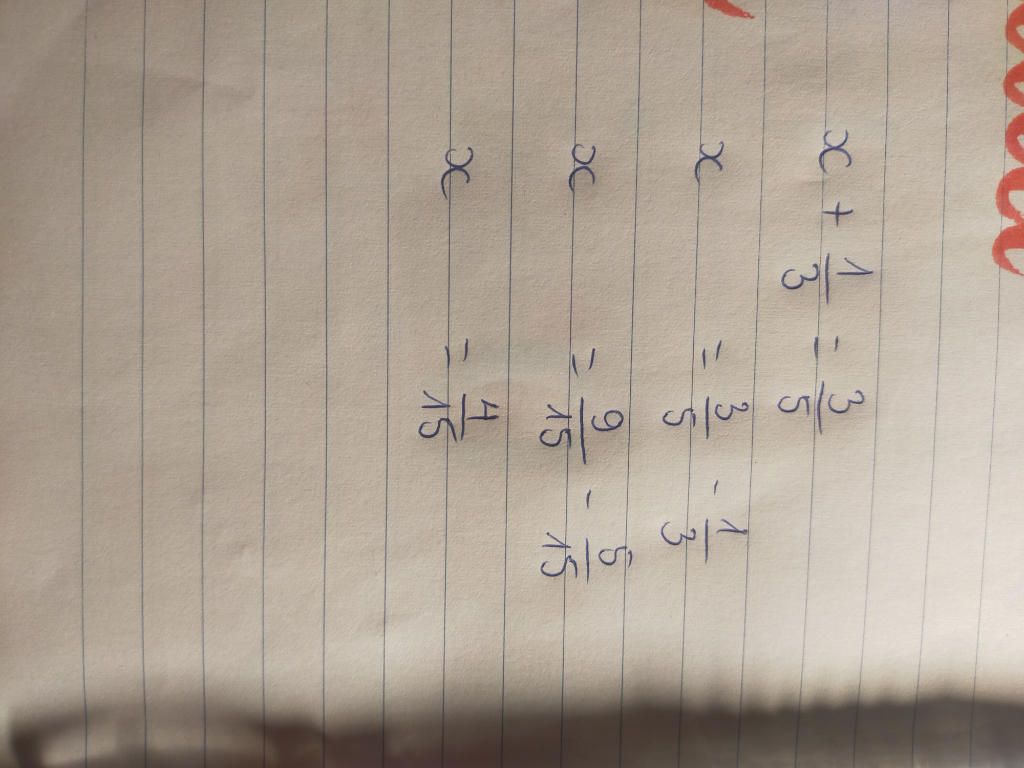 x + 1/3 = 3/5
x = 3/5 - 1/3
x = 9/15 - 5/15
x = 4/15